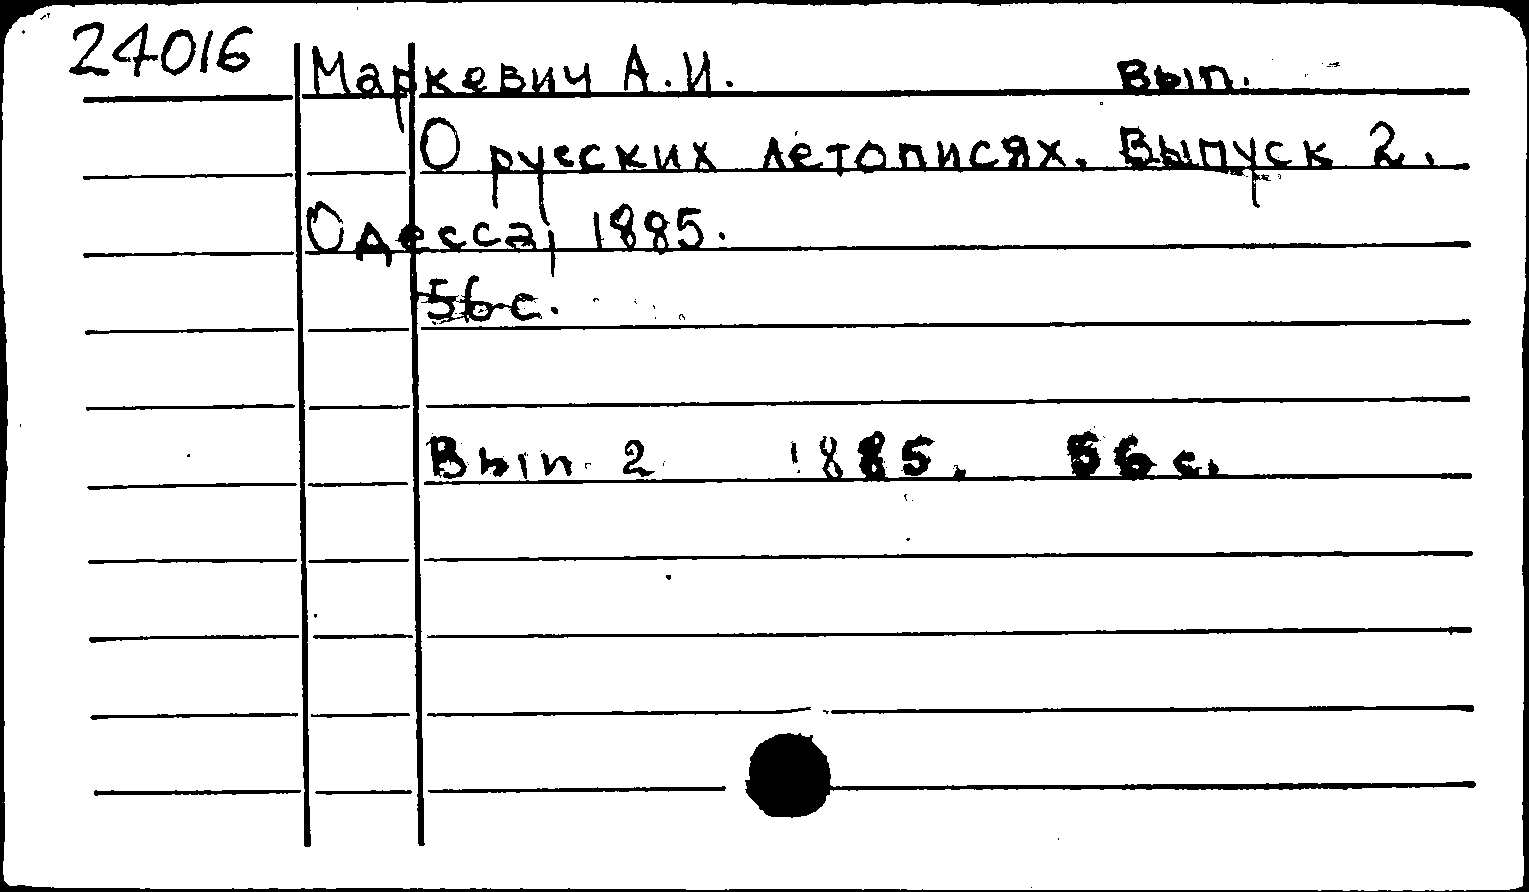 24016
Маркевич А.И. Вып.
О русских летописях. Выпуск 2.
Одесса, 1885.
56 с.
Вып. 2 1885. 56 с.